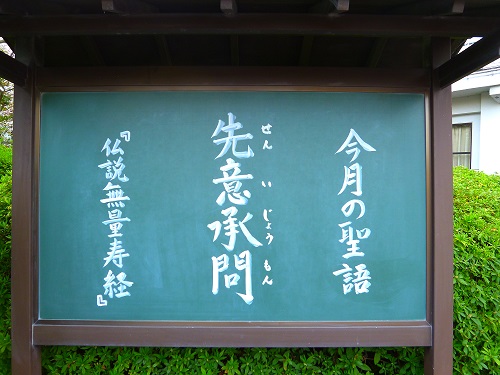 今月の聖語
先意承問
せんいじょうもん
『仏説無量寿経』